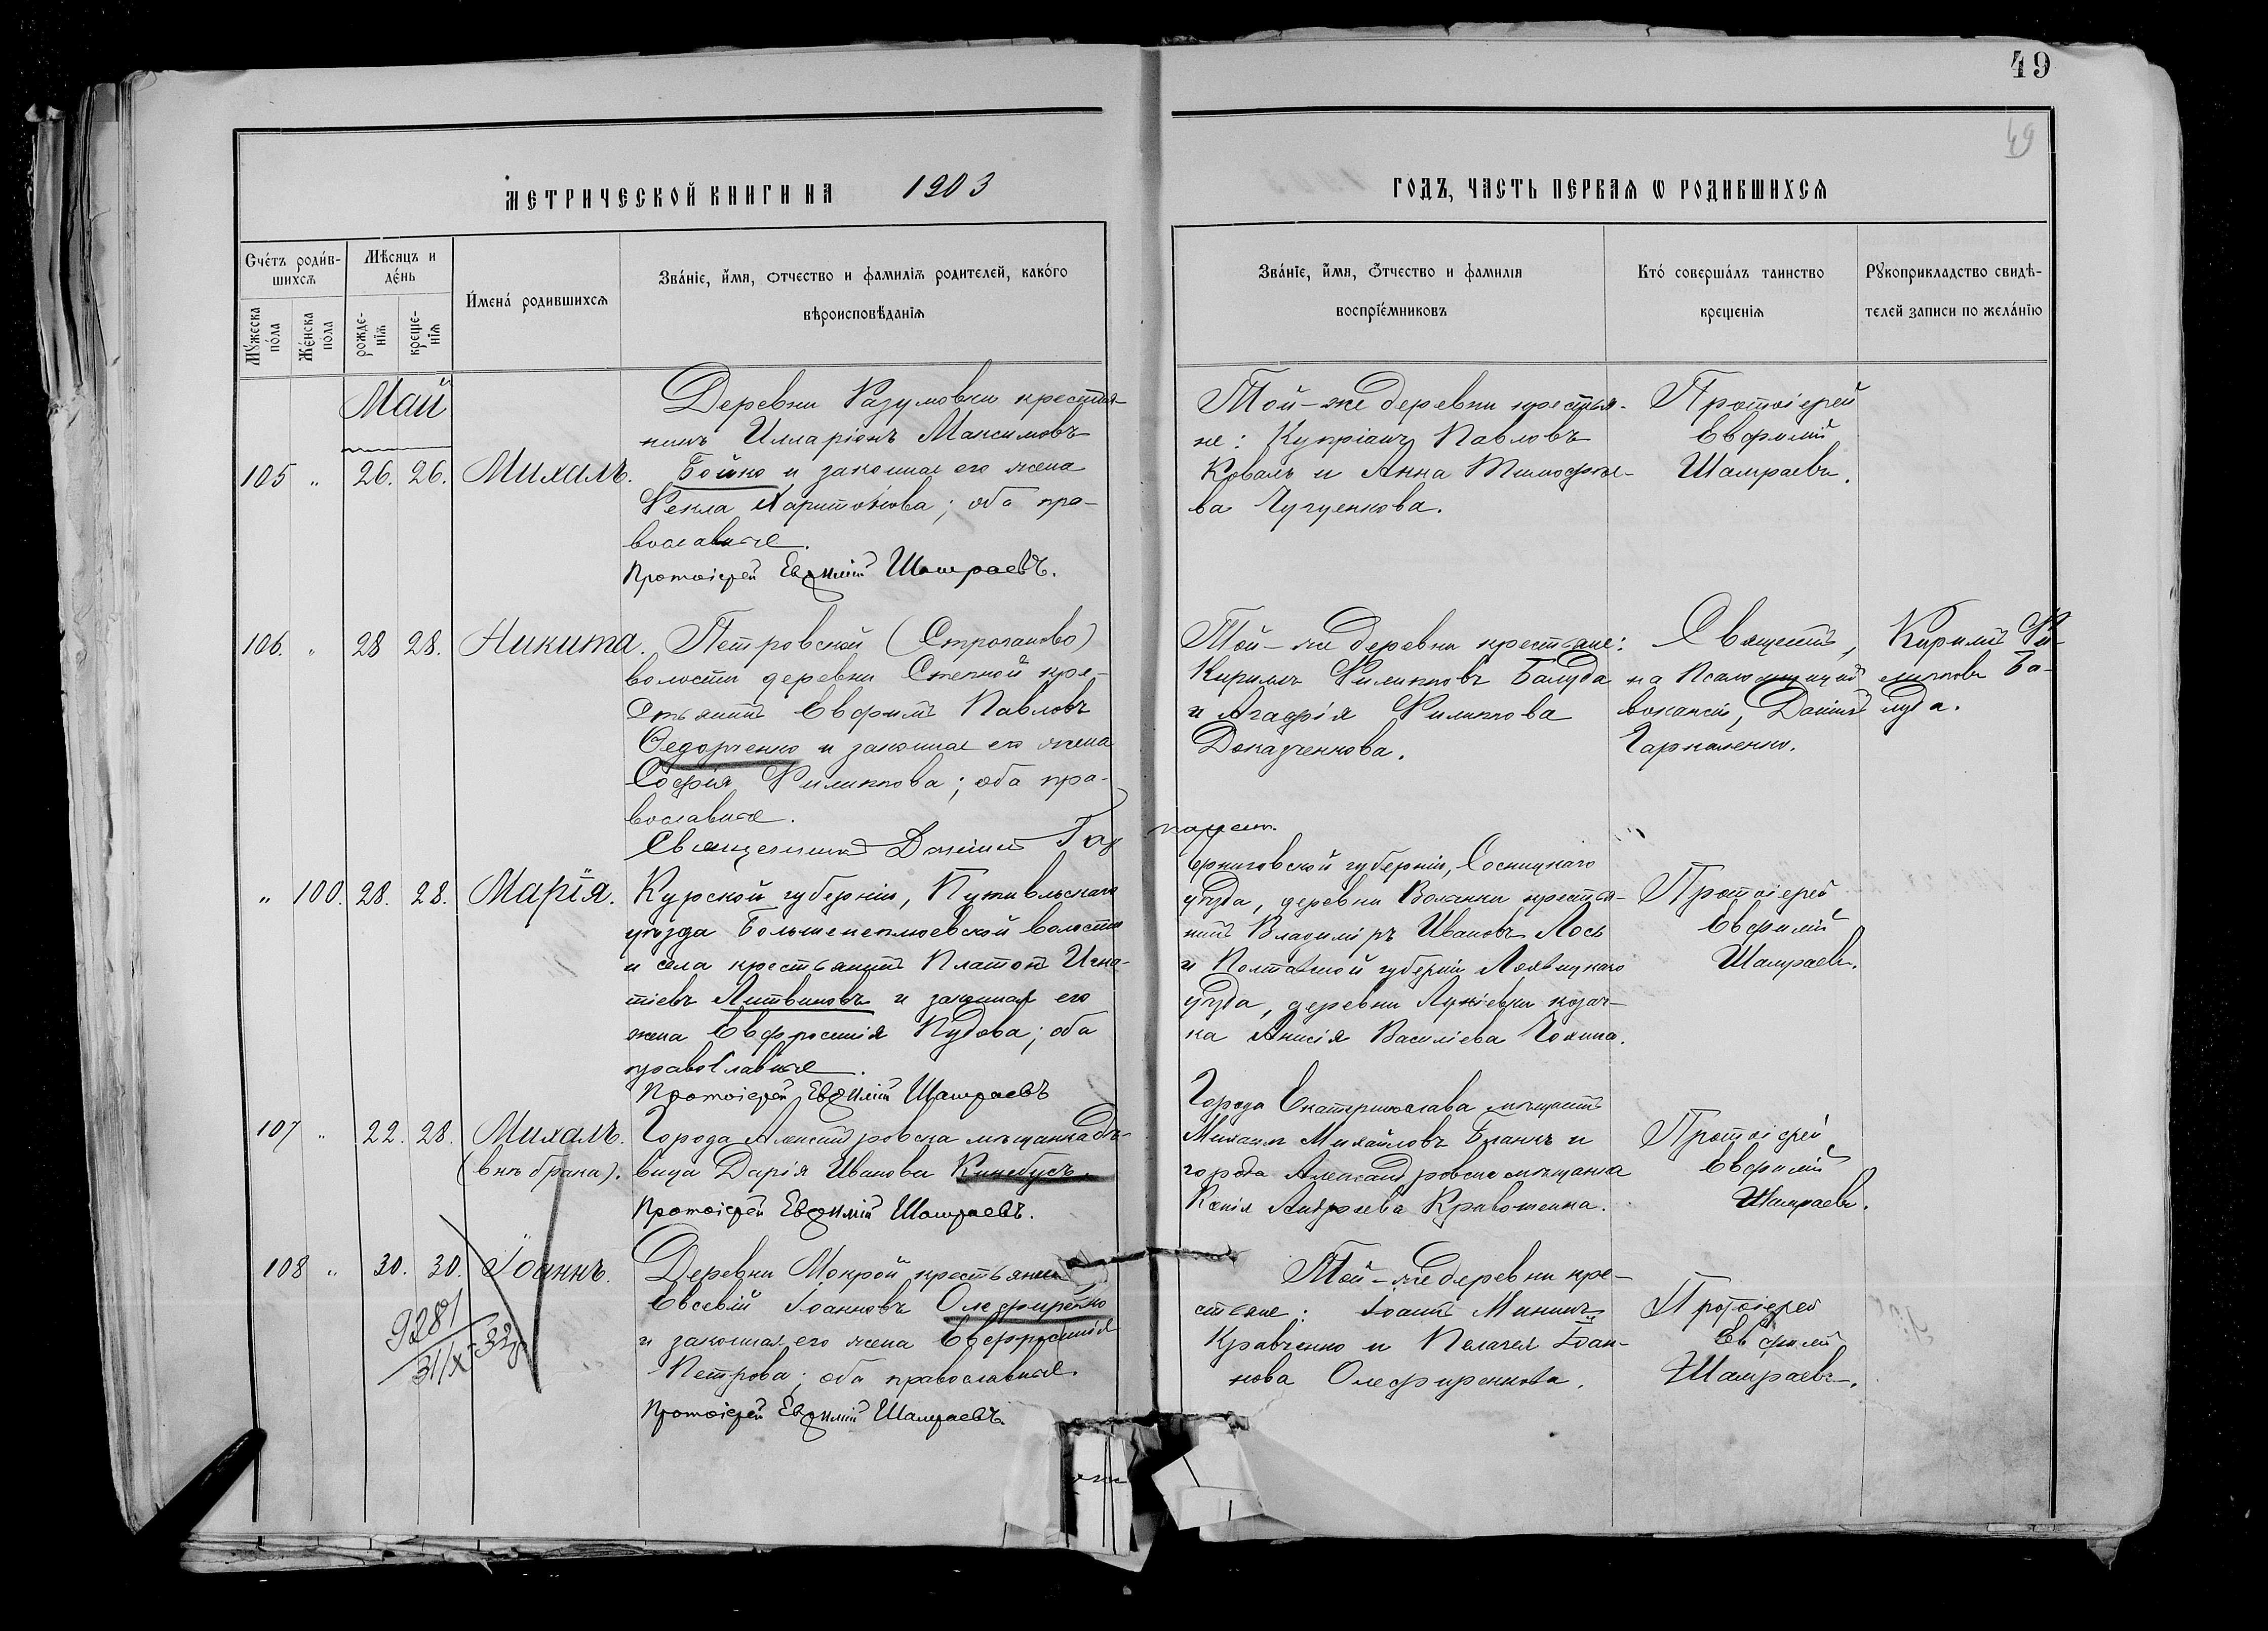 49
49
МЕТРИЧЕСКОЙ КНИГИ НА 1903
ГОДЪ, ЧАСТЬ ПЕРВАѦ Ѡ РОДИВШИХСѦ
Счéтъ роди́в-
шихсѧ
Мꙋ́жеска
по́ла
Же́нска
по́ла
Мѣ́сяцъ и
де́нь
рожде-
нїѧ
креще-
нїѧ
И҆мена́ родившихсѧ
Зва́нїе, и҆́мя, ѻтчество и фамилїѧ родителей, како́го
вѣроисповѣ́данїѧ
Зва́нїе, и҆́мя, ѻ҆́тчество и фамилїя
воспрїе́мниковъ
Кто́ соверша́лъ таинство
крещенїѧ
Рꙋкоприкладство свидѣ-
телей записи по жела́нїю
Май
105 " 26. 26. Михаилъ.
Деревни Разумовки крестья-
нинъ Илларіонъ Максимовъ
Бойко и законная его жена
Ѳекла Харитонова; оба пра-
вославные.
Протоіерей Евѳимій Шамраевъ.
Той-же деревни крестья-
не: Купріанъ Павловъ
Коваль и Анна Тимофѣе-
ва Чугуенкова.
Протоіерей
Евфимій
Шамраевъ.
106. " 28 28. Никита.
Петровской (Строганово)
волости деревни Степной кре-
стьянинъ Евфимъ Павловъ
Ѳедорченко и законная его жена
Софія Филиппова; оба пра-
вославные.
Священникъ Даніилъ Гар
Той-же деревни крестьяне:
Кириллъ Филипповъ Балуда
и Агафія Филиппова
Доказченкова.
Священ.,
на Псаломщицкой
вакансіи, Даніилъ
Гаркаленко.
Кириллъ Фи-
липповъ Ба-
луда.
" 100. 28. 28. Марія.
Курской губерніи, Путивльскаго
уѣзда Большенеплюевской волости
и села крестьянинъ Платонъ Игна-
тіевъ Литвиновъ и законная его
жена Евфросинія Пудова; оба
православные.
Протоіерей Евѳимій Шамраевъ
Черниговской губерніи, Сосницкаго
уѣзда, деревни Волынки крестья-
нинъ Владиміръ Ивановъ Лось
и Полтавской губерніи
уѣзда, деревни козач-
ка Анисія Василіева
Протоіерей
Евфимій
Шамраевъ.
107 " 22. 28. Михаилъ.
(внѣ брака).
Города Александровска мѣщанка дѣ-
вица Дарія Иванова
Протоіерей Евѳимій Шамраевъ.
Города Екатеринослава мѣщанинъ
Михаилъ Михайловъ Бланкъ и
города Александровска мѣщанка
Ксенія Андреева
Протоіерей
Евфимій
Шамраевъ.
108 " 30. 30. Іоаннъ.
9281
31/X 32
Деревни Мокрой крестьянинъ
Евсевій Іоанновъ Олефиренко
и законная его жена Евфросинія
Петрова; оба православные.
Протоіерей Евѳимій Шамраевъ.
Той-же деревни кре-
стьяне: Іоаннъ Мининъ
Кравченко и Пелагея Іоан-
нова Олефиренкова.
Протоіерей
Евфимій
Шамраевъ.